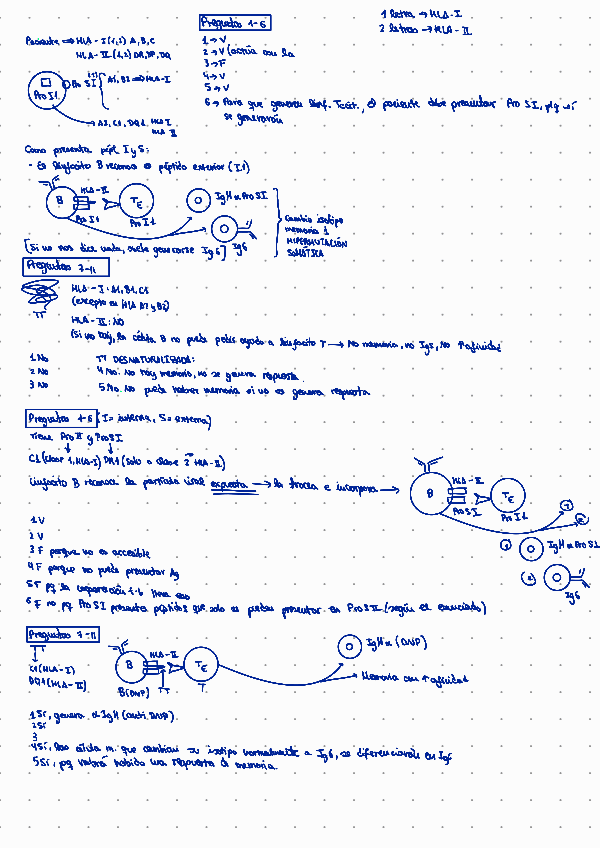 Preguntas 1-6
1 letra → HLA-I
2 letras → HLA-II
Paciente ⇒ HLA-I (1,2) A, B, C
HLA-II (1,2) DR, DP, DQ
1 → V
2 → V
3 → F
4 → V
5 → V
6 → Para que generen linf. Tcit., el paciente debe presentar Pro SI, pq si
se generarán
Pro SI
A1, B2 ⇒ HLA-I
Pro I1
A2, C1, DQ1 HLA I
HLA II
Como presenta pépt I y S:
- El linfocito B reconoce el péptido exterior (I1)
B HLA-II TE
Pro I1 Pro I1
IgM α Pro SI
IgG
Cambio isotipo
memoria
HIPERMUTACIÓN
SOMÁTICA
[Si no nos dice nada, suele generarse IgG]
Preguntas 7-11
HLA-I: A1, B1, C1
(excepto en HLA A2 y B2)
TT
HLA-II: NO
(Si no hay, la célula B no puede pedir ayuda a linfocito T → No memoria, no IgG, No ↑afinidad
1 No
2 No
3 No
TT DESNATURALIZADA:
4 No. No hay memoria, no se genera respuesta
5 No. No puede haber memoria si no se genera respuesta
Preguntas 1-6 (I = interna, S = externa)
Tiene Pro II y Pro SI
C1 (clase 1, HLA-I) DR1 (solo a clase 2 HLA-II)
Linfocito B reconoce la partícula viral expuesta → la trocea e incorpora →
B HLA-II TE
Pro SI Pro I1
IgM α Pro SI
IgG
1 V
2 V
3 F porque no es accesible
4 F porque no puede presentar Ag
6 F no pq Pro SI presenta péptidos que solo se pueden presentar en Pro SII (según el enunciado)
Preguntas 7-11
TT
C1 (HLA-I)
DQ1 (HLA-II)
B HLA-II TE
B (DNP) TT T
IgM α (DNP)
Memoria con ↑ afinidad
1 Sí, genera α IgM (anti DNP).
2 Sí
3
4 Sí, las células m. que cambian su isotipo normalmente a IgG, se diferenciarán en IgG
5 Sí, pq habrá habido una respuesta de memoria.